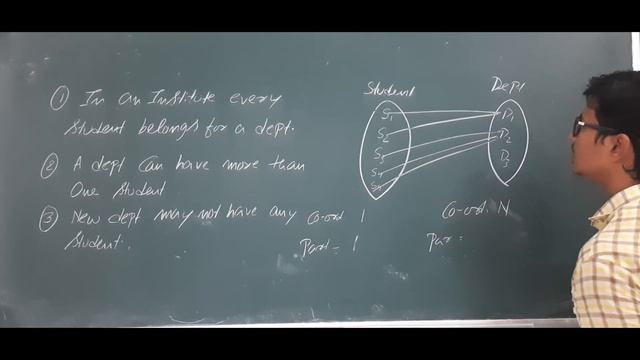 ① In an Institute every
student belongs for a dept.
② A dept Can have more than
One student
③ New dept may not have any
student.
Student Dept
S1 D1
S2 D2
S3 D3
S4
S5
Co-ord 1 Co-ord. N
Part = 1 Par =